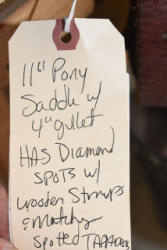 11" Pony
Saddle w/
4" gullet
HAS Diamond
SPOTS w/
wooden Stirrups
& Matchg
spotted TAPADEROS